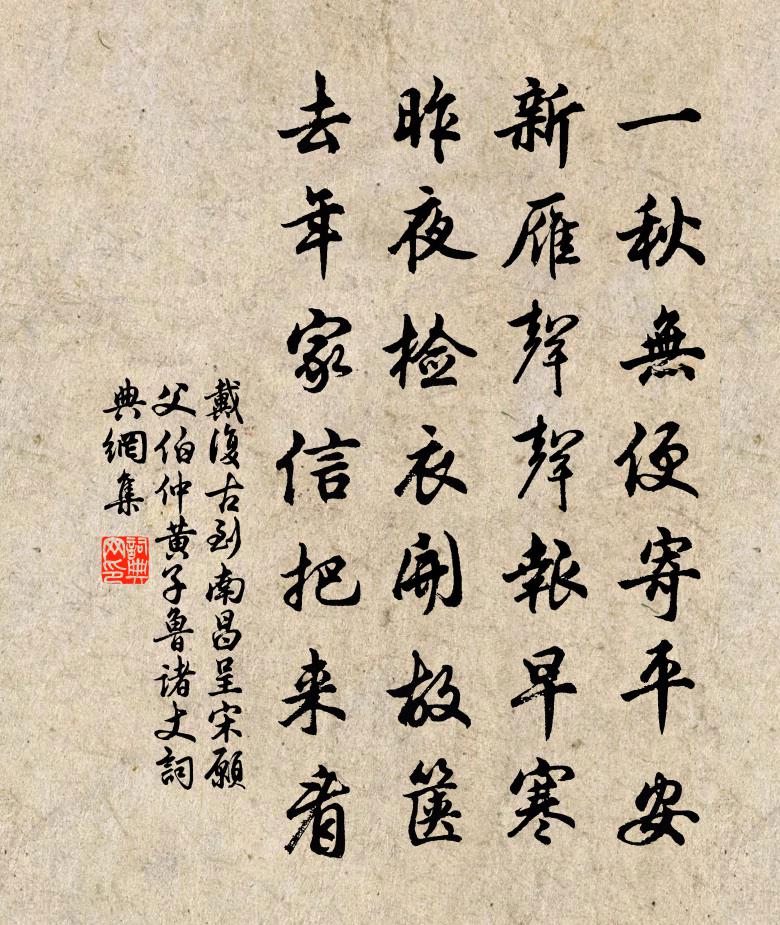 一秋無便寄平安
新雁聲聲報早寒
昨夜檢衣開故篋
去年家信把来看
戴復古到南昌呈宋願
父伯仲黄子魯諸丈詞
典網集
詞典网印